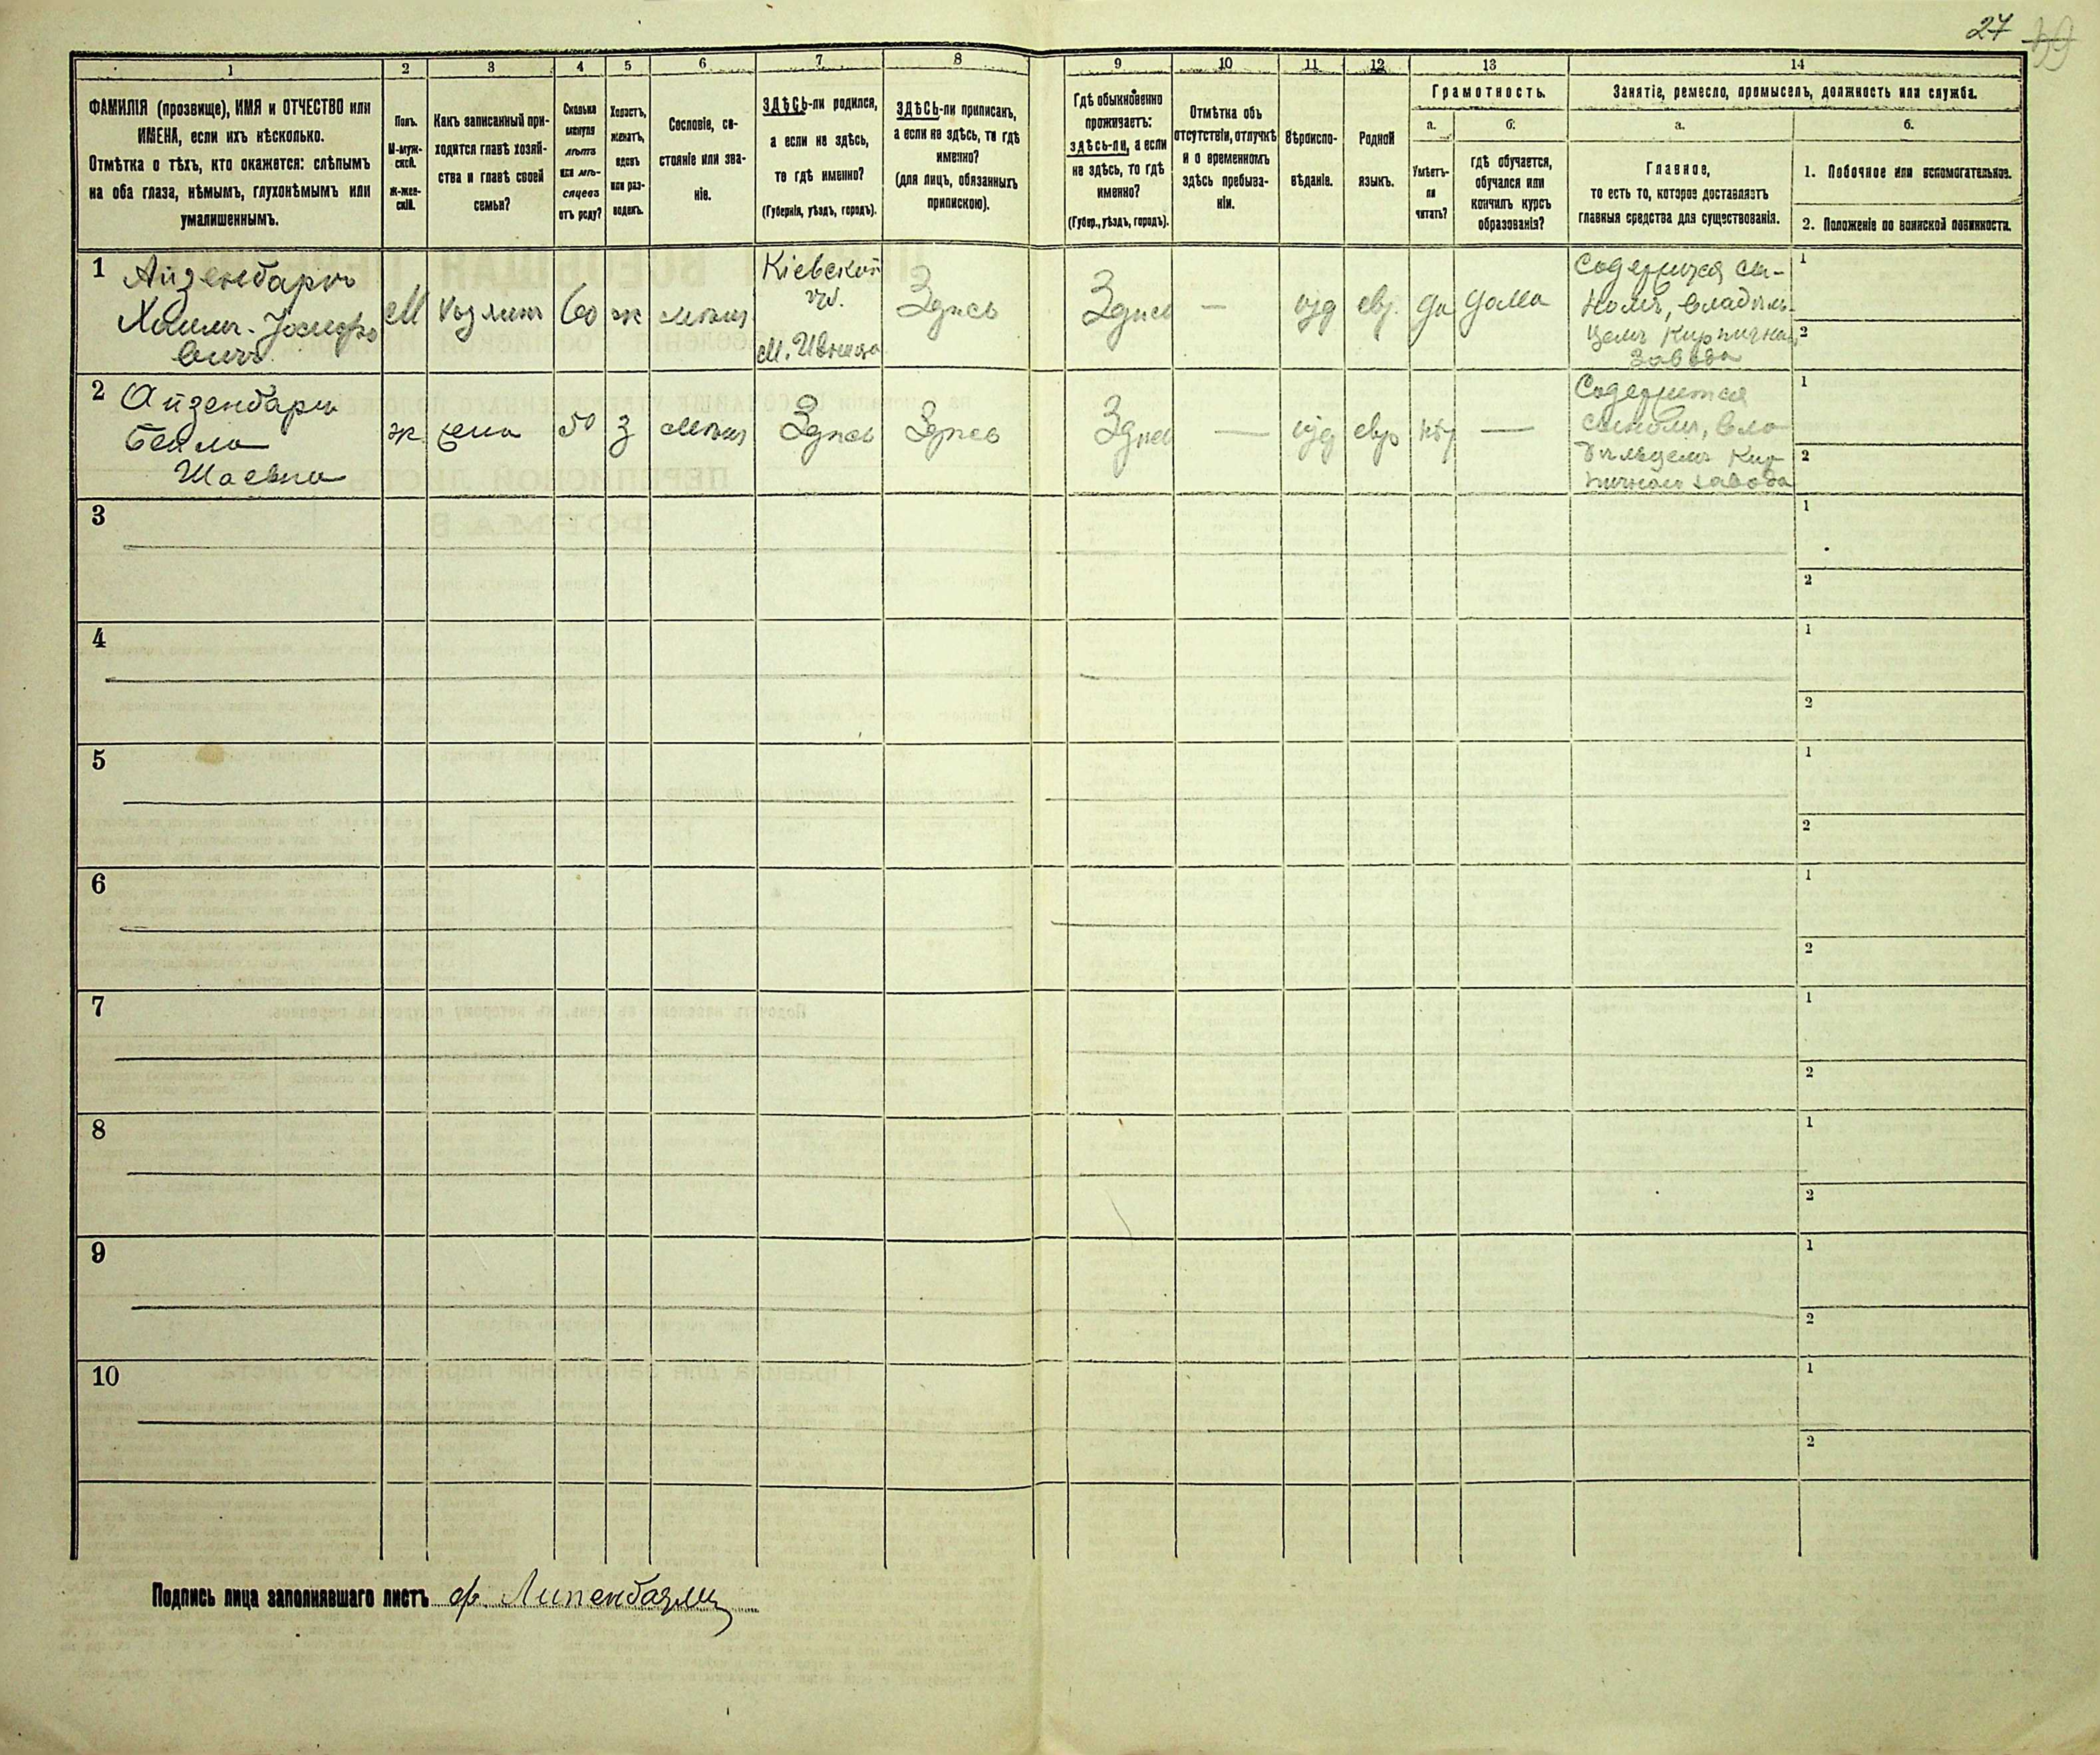 27 39
1 2 3 4 5 6 7 8 9 10 11 12 13 14
ФАМИЛІЯ (прозвище), ИМЯ и ОТЧЕСТВО или
ИМЕНА, если ихъ нѣсколько.
Отмѣтка о тѣхъ, кто окажется: слѣпымъ
на оба глаза, нѣмымъ, глухонѣмымъ или
умалишеннымъ.
Полъ.
М-муж-
ской.
Ж-жен-
скій.
Какъ записанный при-
ходится главѣ хозяй-
ства и главѣ своей
семьи?
Сколько
минуло
лѣтъ
или мѣ-
сяцевъ
отъ роду?
Холостъ,
женатъ,
вдовъ
или раз-
веденъ.
Сословіе, со-
стояніе или зва-
ніе.
ЗДѢСЬ-ли родился,
а если не здѣсь,
то гдѣ именно?
(Губернія, уѣздъ, городъ).
ЗДѢСЬ-ли приписанъ,
а если не здѣсь, то гдѣ
именно?
(для лицъ, обязанныхъ
припискою).
Гдѣ обыкновенно
проживаетъ:
здѣсь-ли, а если
не здѣсь, то гдѣ
именно?
(Губер., уѣздъ, городъ).
Отмѣтка объ
отсутствіи, отлучкѣ
и о временномъ
здѣсь пребыва-
ніи.
Вѣроиспо-
вѣданіе.
Родной
языкъ.
Грамотность.
а.
Умѣетъ-
ли
читать?
б.
гдѣ обучается,
обучался или
кончилъ курсъ
образованія?
Занятіе, ремесло, промыселъ, должность или служба.
а.
Главное,
то есть то, которое доставляетъ
главныя средства для существованія.
б.
1. Побочное или вспомогательное.
2. Положеніе по воинской повинности.
1 Айзенбаргъ
Хаимъ-Іосифо
вичъ
М
хозяинъ
60
ж
мѣщан
Кіевской
губ.
м. Ивница
Здѣсь
Здѣсь
—
іуд
евр.
да
дома
Содержится сы-
номъ, владѣль-
цемъ Кирпична
завода
1
2
2 Айзенбаргъ
Бейла
Шаевна
ж
жена
50
з
мѣщан
Здѣсь
Здѣсь
Здѣсь
—
іуд
евр
нѣт
—
Содержится
сыномъ, вла
дѣльцемъ Кир
пичнаго завода
1
2
3
1
2
4
1
2
5
1
2
6
1
2
7
1
2
8
1
2
9
1
2
10
1
2
Подпись лица заполнявшаго листъ